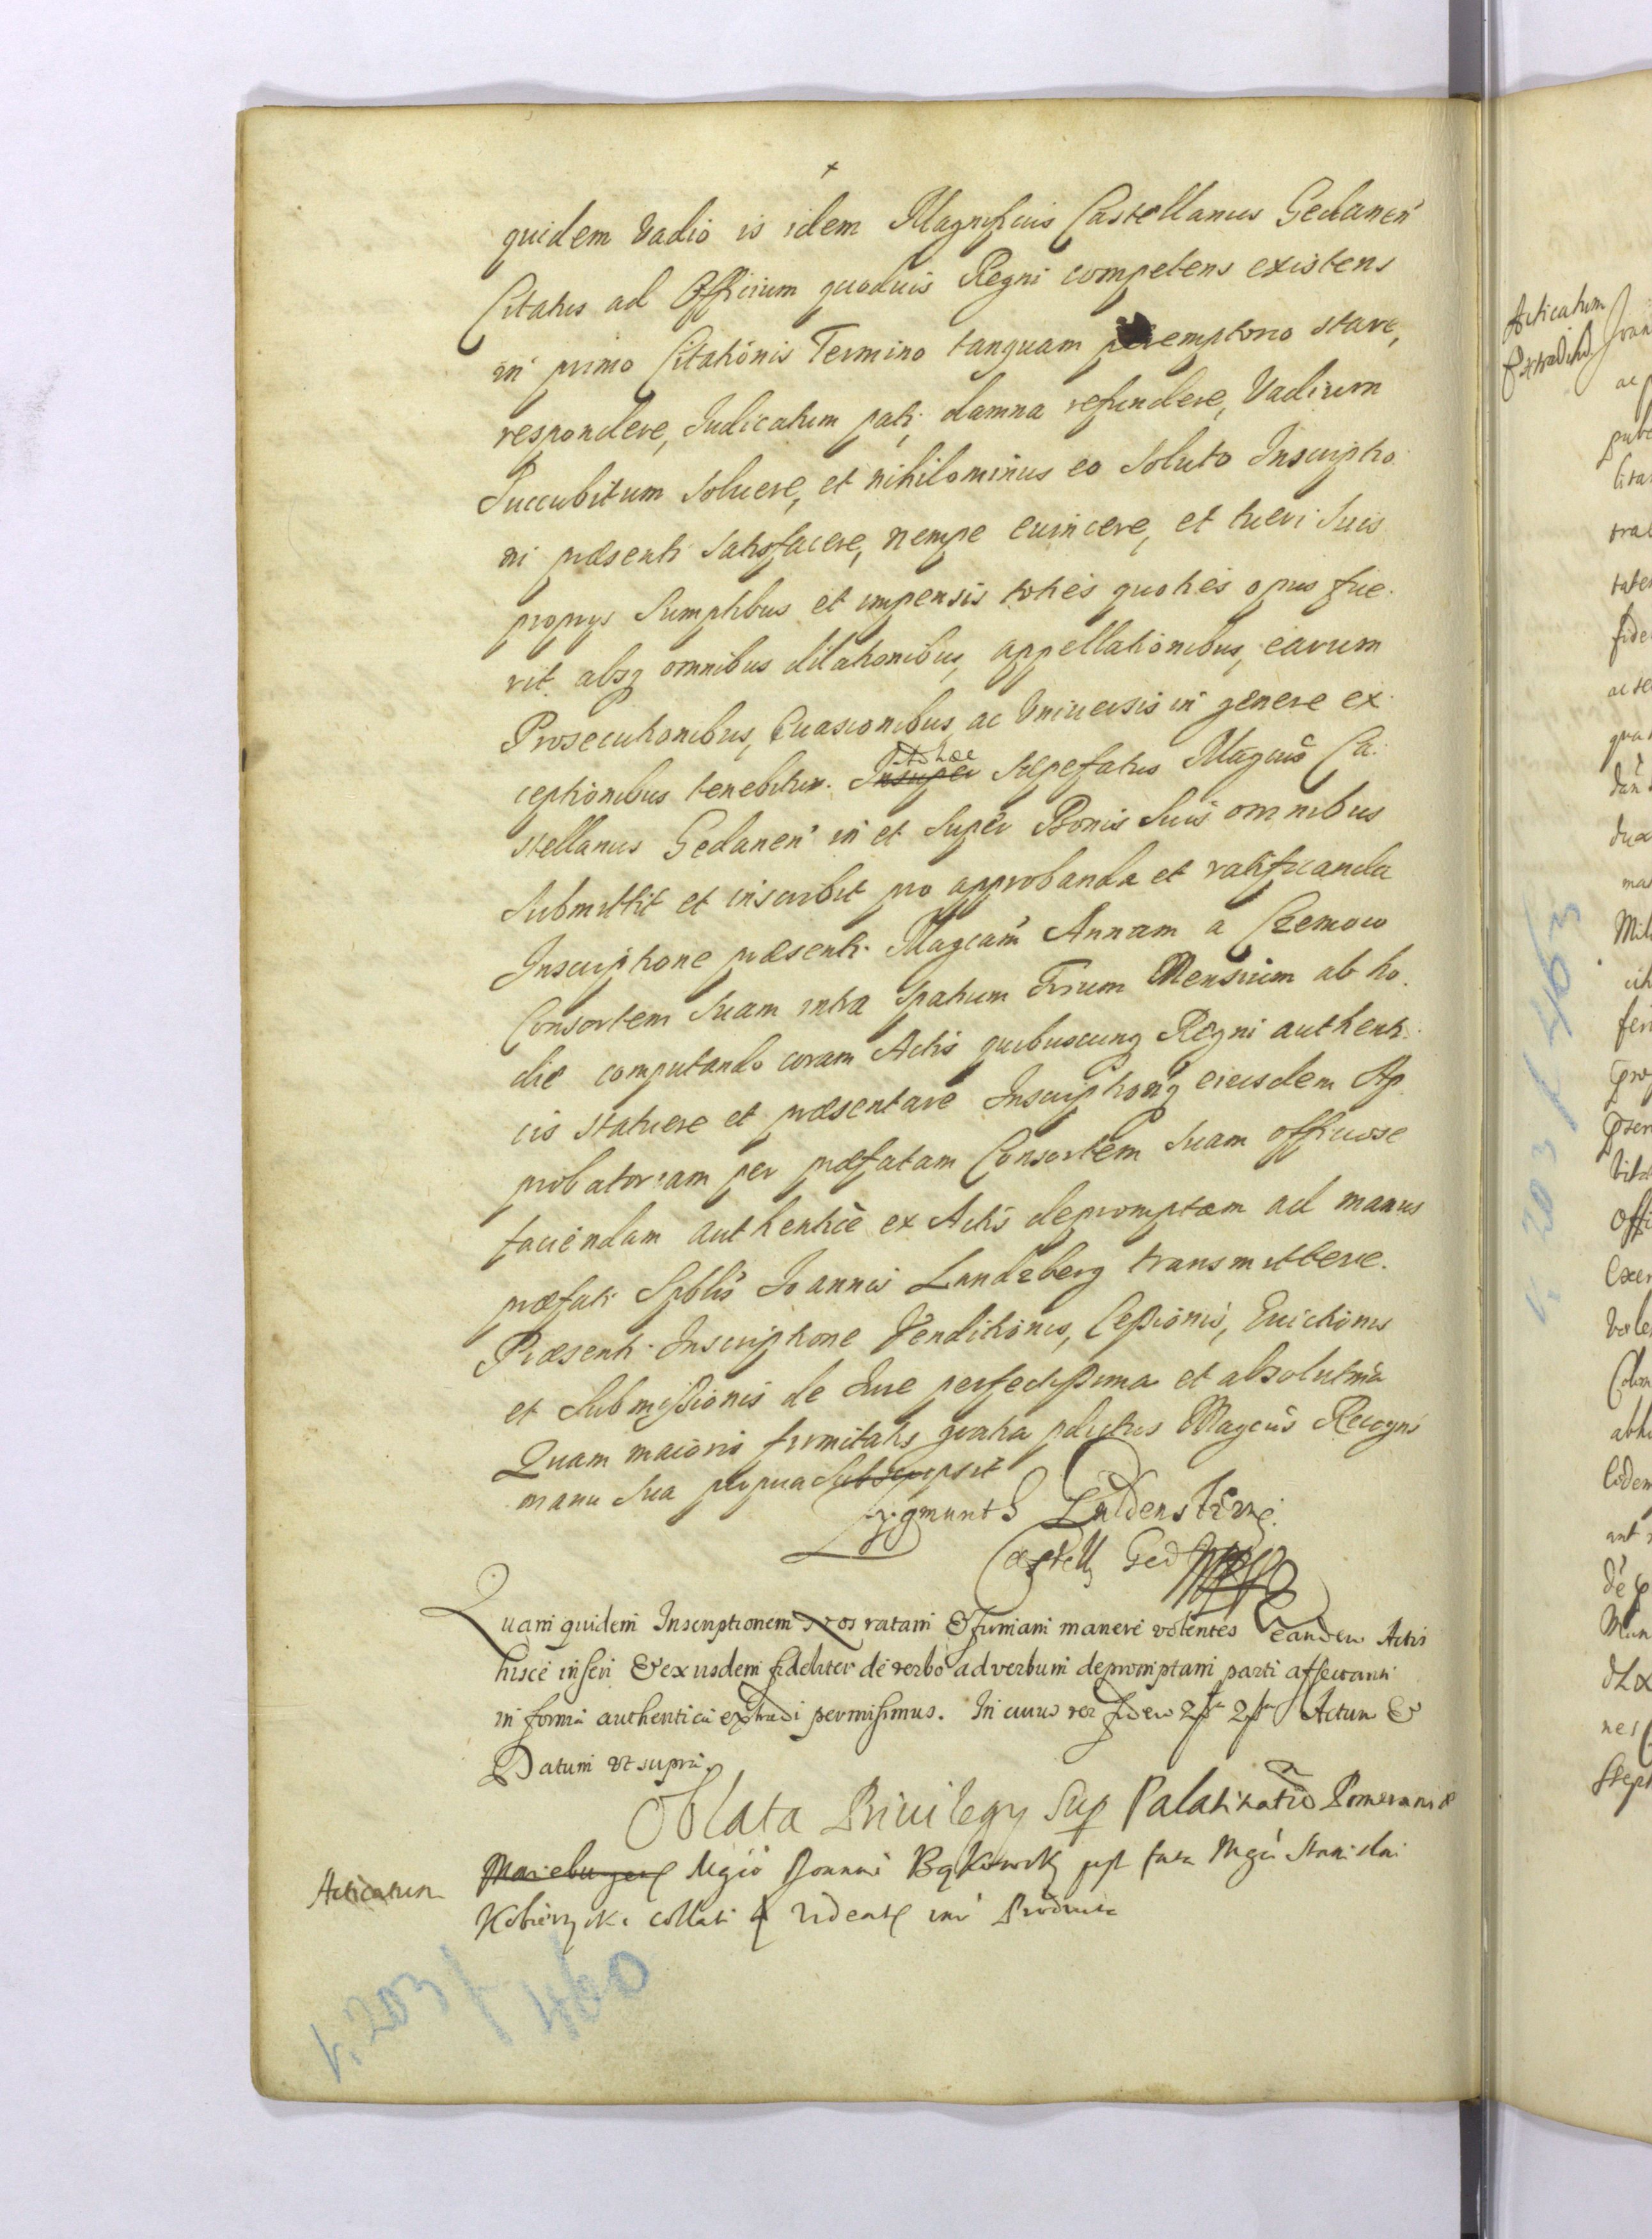 quidem Vadio is idem Magnificus Castellanus Gedanen̄
Citatus ad Officium quoduis Regni competens existens
in primo Citationis Termino tanquam peremptorio stare,
respondere, Iudicatum pati, damna refundere, Vadium
Succubitum soluere, et nihilominus eo Soluto Inscriptio
ni præsenti satisfacere, nempe euincere, et tueri Suis
proprys Sumptibus et impensis toties quoties opus fue
rit absq omnibus dilationibus, appellationibus, earum
Prosecutionibus, Euasionibus ac Vniuersis in genere ex
ceptionibus tenebitur. Insuper Ad hoc Sæpefatus Magcus Ca
stellanus Gedanen̄ in et super Bonis Suis omnibus
Submittit et inscribit pro approbanda et ratificanda
Inscriptione præsenti Magcam Annam a Czemow
Consortem Suam intra Spatium Trium Mensium ab ho
die computando coram Actis quibuscunq Regni authenti
cis statuere et præsentare Inscriptionq eiusdem Ap
probatoriam per præfatam Consortem Suam officiose
faciendam authentice ex Actis depromptam ad manus
præfati Spblis Ioannis Landzberg transmittere.
Præsenti Inscriptione Venditionis, Cessionis, Euictionis
et Submissionis de Iure perfectissima et absolutma
Quam maioris firmitatis gratia pdictus Magcus Recogns
manu Sua propria Subscripsit
Zygmunth Guldenstern
Castell Ged
Quam quidem Inscriptionem Nos ratam & firmam manere volentes Eandem Actis
hisce inseri & ex iisdem fideliter de verbo ad verbum depromptam parti affectanti
in forma authentica extradi permisimus. In cuius rei fidem Actum &
Datum vt supra.
Oblata Priuilegy Sup Palatinatu Pomeraniæ
Acticatum Marieburgen Mgco Ioanni Bąkowsky post fata Mgci Stanislai
Kobierzycki collati